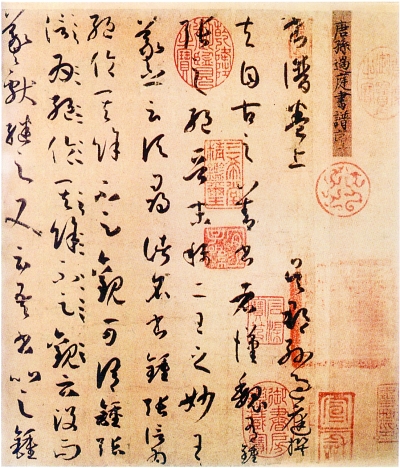 唐孫過庭書譜序
書譜卷上 吳郡孫過庭撰
夫自古之善書者漢魏有鍾
張之絕晉末稱二王之妙王
羲之云頃尋諸名書鍾張信為
絕倫其餘不足觀可謂鍾張
信為絕倫其餘不足觀云沒而
羲獻繼之又云吾書比之鍾
三希堂精鑑璽
宣和